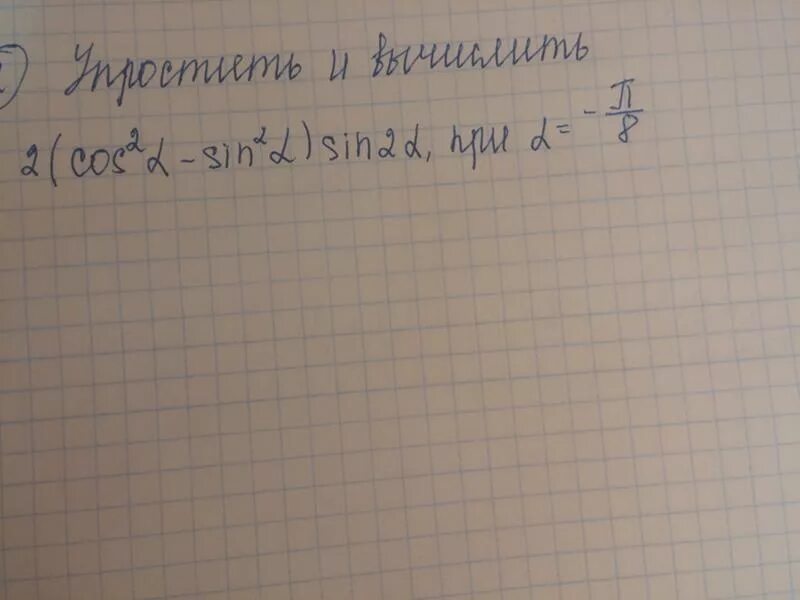 Упростить и вычислить
2(cos²α - sin²α) sin2α, при α = -π/8